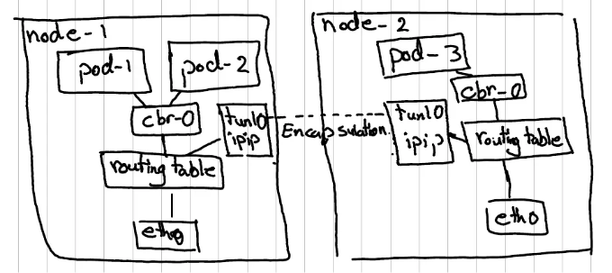 node-1
pod-1
pod-2
cbr-0
tunl0
ipip
routing table
eth0
Encapsulation
node-2
pod-3
cbr-0
tunl0
ipip
routing table
eth0